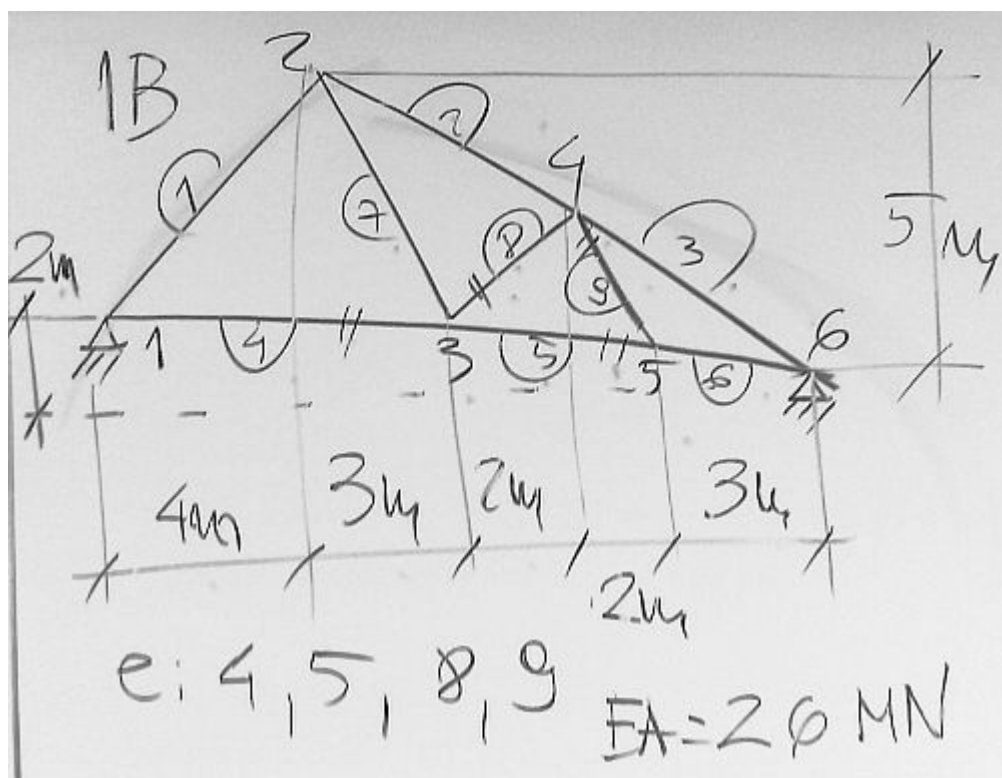 1B
2
2
4
1
7
8
3
9
5 m
2m
1
4
3
5
5
6
6
4m
3m
2m
2m
3m
e: 4, 5, 8, 9
EA = 26 MN